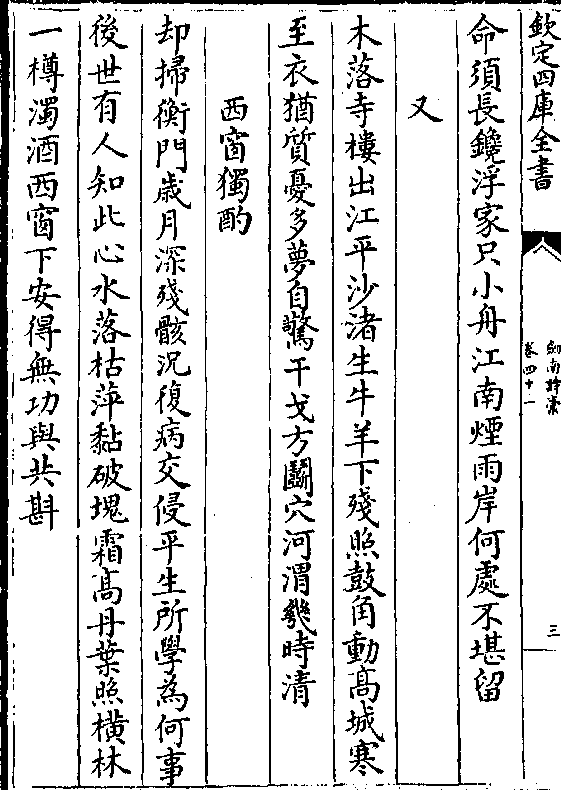 欽定四庫全書
劍南詩稾
卷四十一
三
命須長鑱浮家只小舟江南煙雨岸何處不堪留
又
木落寺樓出江平沙渚生牛羊下殘照鼓角動高城寒
至衣猶質憂多夢自驚干戈方鬭穴河渭幾時清
西窗獨酌
却掃衡門歲月深殘骸況復病交侵平生所學為何事
後世有人知此心水落枯萍黏破塊霜高丹葉照橫林
一樽濁酒西窗下安得無功與共斟